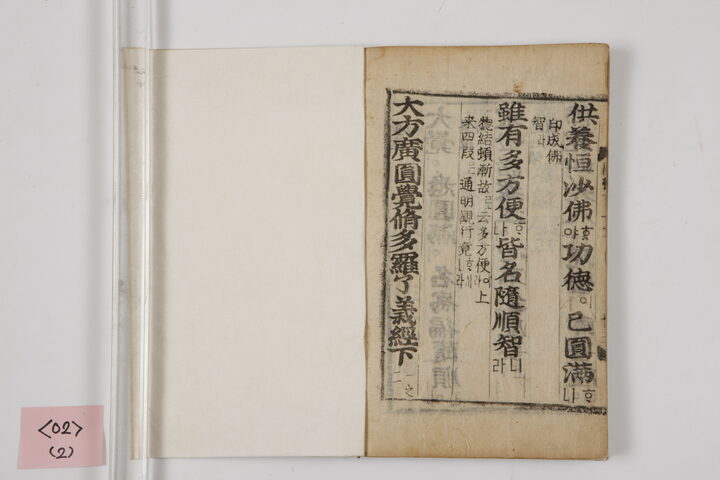 供養恒沙佛ᄒᆞ야功德이已圓滿ᄒᆞ나
印成佛
智라
雖有多方便ᄒᆞ나皆名隨順智니라
揔結頓漸故로云多方便이라上
来四段은通明觀行竟
大方廣圓覺脩多羅了義經下
一之
二
<02>
(2)